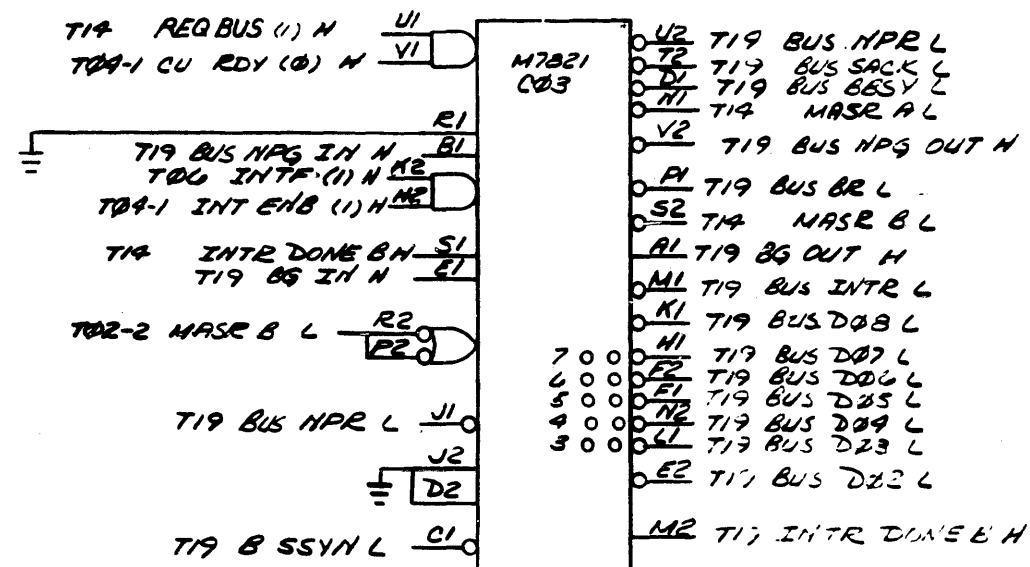 T14 REQ BUS (1) H U1
TØ4-1 CU RDY (Ø) H V1
R1
T19 BUS NPG IN H B1
TØ6 INTF (1) H K2
TØ4-1 INT ENB (1) H H2
T14 INTR DONE B H S1
T19 BG IN H E1
TØ2-2 MASR B L R2
P2
T19 BUS NPR L J1
J2
D2
T19 B SSYN L C1
M7821
CØ3
7
6
5
4
3
U2 T19 BUS NPR L
T2 T19 BUS SACK L
D1 T19 BUS BBSY L
N1 T14 MASR A L
V2 T19 BUS NPG OUT H
P1 T19 BUS BR L
S2 T14 MASR B L
A1 T19 BG OUT H
M1 T19 BUS INTR L
K1 T19 BUS DØ8 L
H1 T19 BUS DØ7 L
F2 T19 BUS DØ6 L
F1 T19 BUS DØ5 L
N2 T19 BUS DØ4 L
L1 T19 BUS DØ3 L
E2 BUS DØ2 L
M2 INTR DONE B H